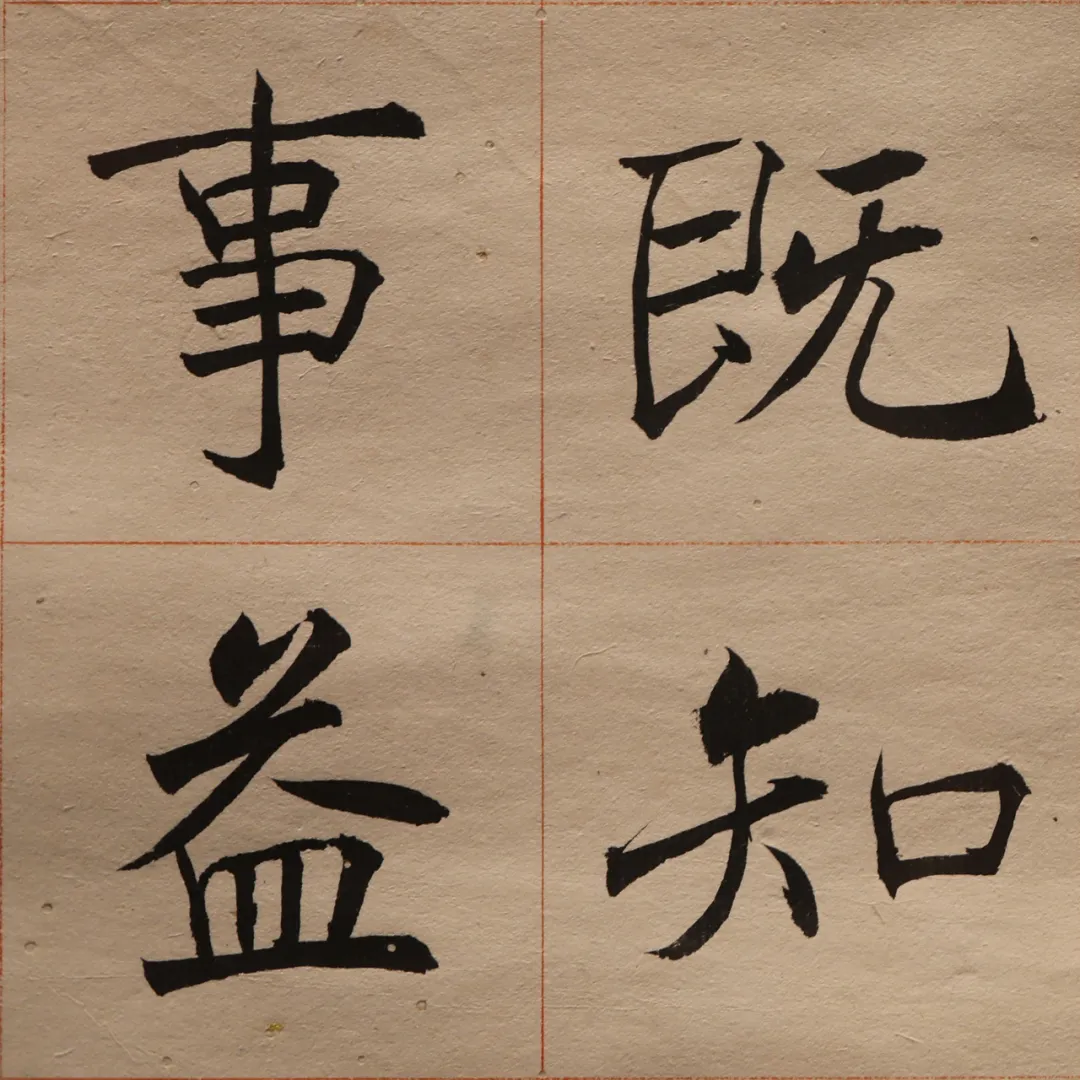 既知
事益